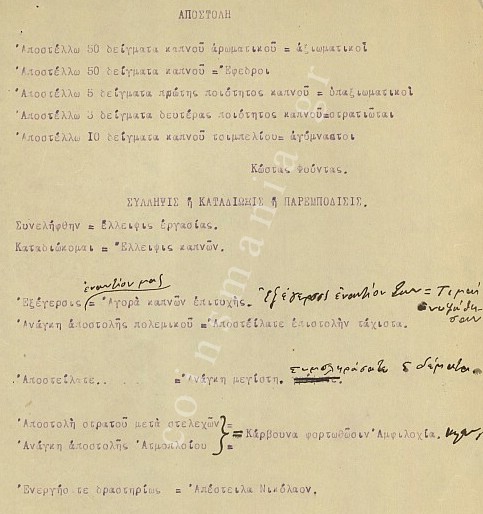 ΑΠΟΣΤΟΛΗ
Ἀποστέλλω 50 δείγματα καπνοῦ ἀρωματικοῦ = ἀξιωματικοί
Ἀποστέλλω 50 δείγματα καπνοῦ = Ἔφεδροι
Ἀποστέλλω 5 δείγματα πρώτης ποιότητος καπνοῦ = ὑπαξιωματικοί
Ἀποστέλλω 3 δείγματα δευτέρας ποιότητος καπνοῦ=στρατιῶται
Ἀποστέλλω 10 δείγματα καπνοῦ τσιμπελίου= ἀγύμναστοι
Κώστας Φούντας.
ΣΥΛΛΗΨΙΣ ἤ ΚΑΤΑΔΙΩΞΙΣ ἤ ΠΑΡΕΜΠΟΔΙΣΙΣ.
Συνελήφθην = ἔλλειψις ἐργασίας.
Καταδιώκομαι = Ἔλλειψις καπνῶν.
ἐναντίον μας
Ἐξέγερσις = Ἀγορά καπνῶν ἐπιτυχής. Ἐξέγερσις ἐναντίον των = Τιμαί
Ἀνάγκη ἀποστολῆς πολεμικοῦ = Ἀποστείλατε ἐπιστολήν τάχιστα.
5 δέματα
Ἀποστείλατε........ =Ἀνάγκη μεγίστη.
Ἀποστολή στρατοῦ μετά στελεχῶν =
= Κάρβουνα φορτωθῶσιν Ἀμφιλοχία.
Ἀνάγκη ἀποστολῆς Ἀτμοπλοίου =
Ἐνεργήσατε δραστηρίως = Ἀπέστειλα Νικόλαον.
coinsmania.gr